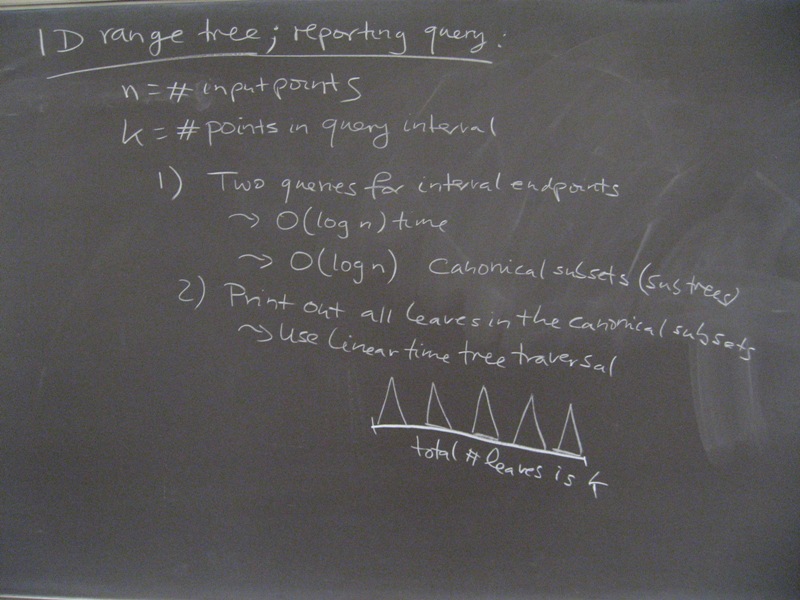 1D range tree; reporting query:
n = # input points
k = # points in query interval
1) Two queries for interval endpoints
~> O(log n) time
~> O(log n) Canonical subsets (subtrees)
2) Print out all leaves in the canonical subsets
~> Use linear time tree traversal
total # leaves is k